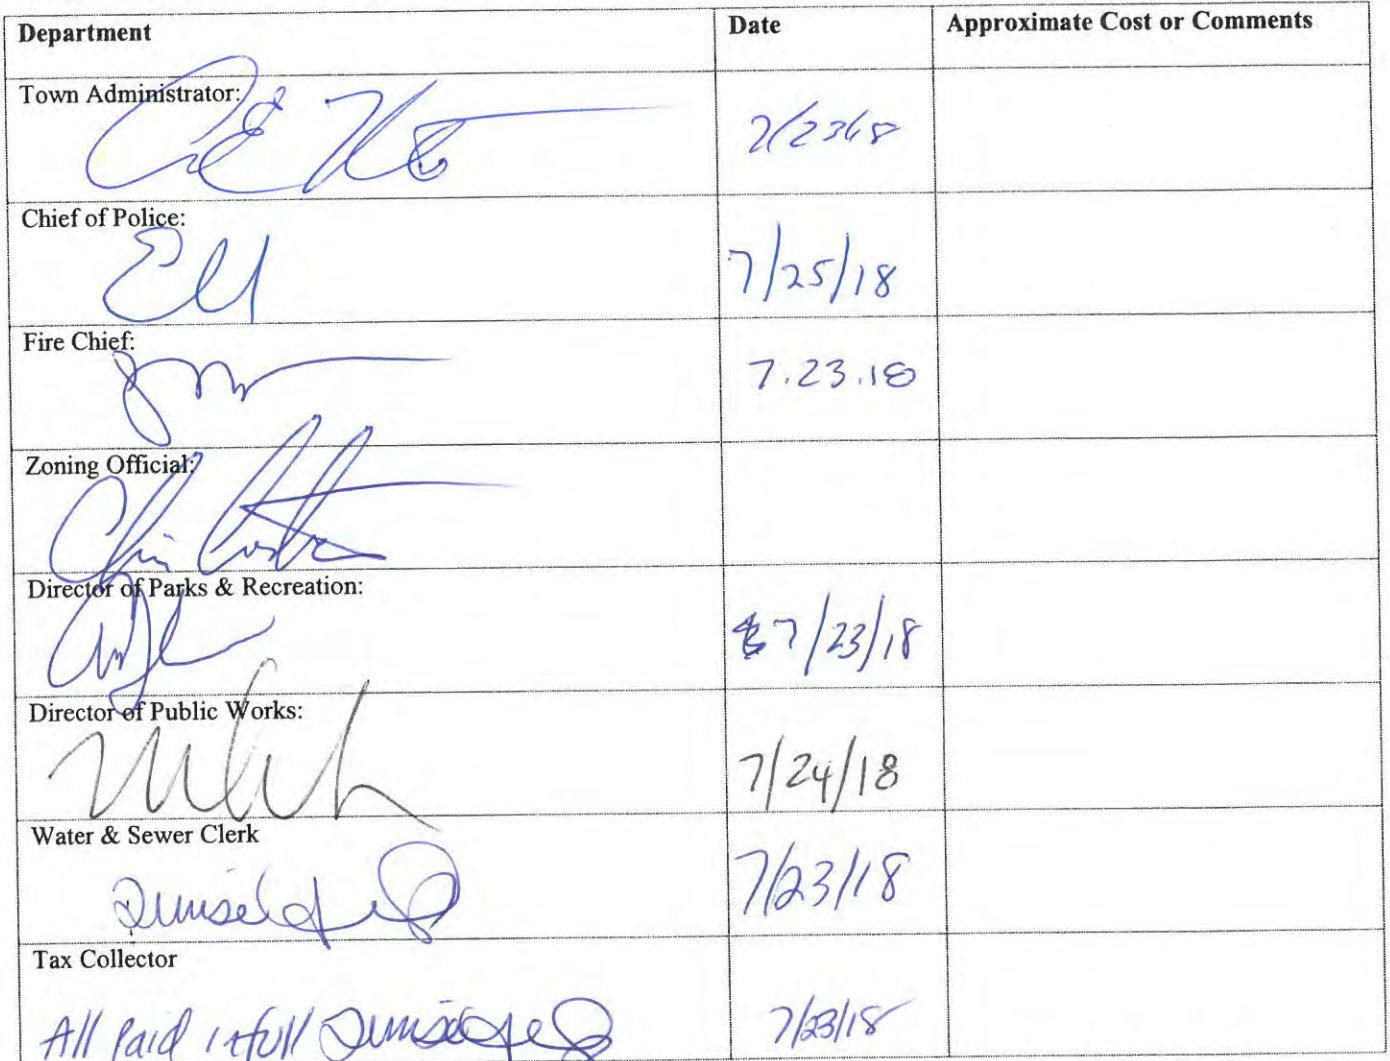 Department Date Approximate Cost or Comments
Town Administrator:
7/23/18
Chief of Police:
7/25/18
Fire Chief:
7.23.18
Zoning Official:
Director of Parks & Recreation:
7/23/18
Director of Public Works:
7/24/18
Water & Sewer Clerk
7/23/18
Tax Collector
All Paid in full
7/23/18